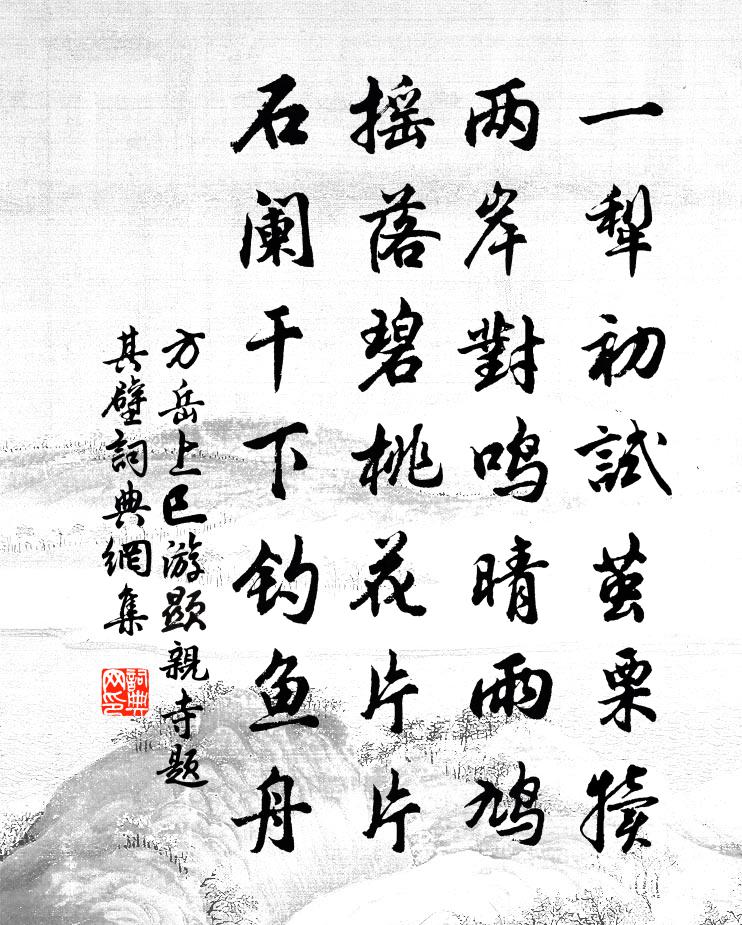 一犁初試茧栗犊
两岸對鸣晴雨鸠
摇落碧桃花片片
石阑干下钓鱼舟
方岳上巳游顯親寺题
其壁詞典網集
詞典
网印